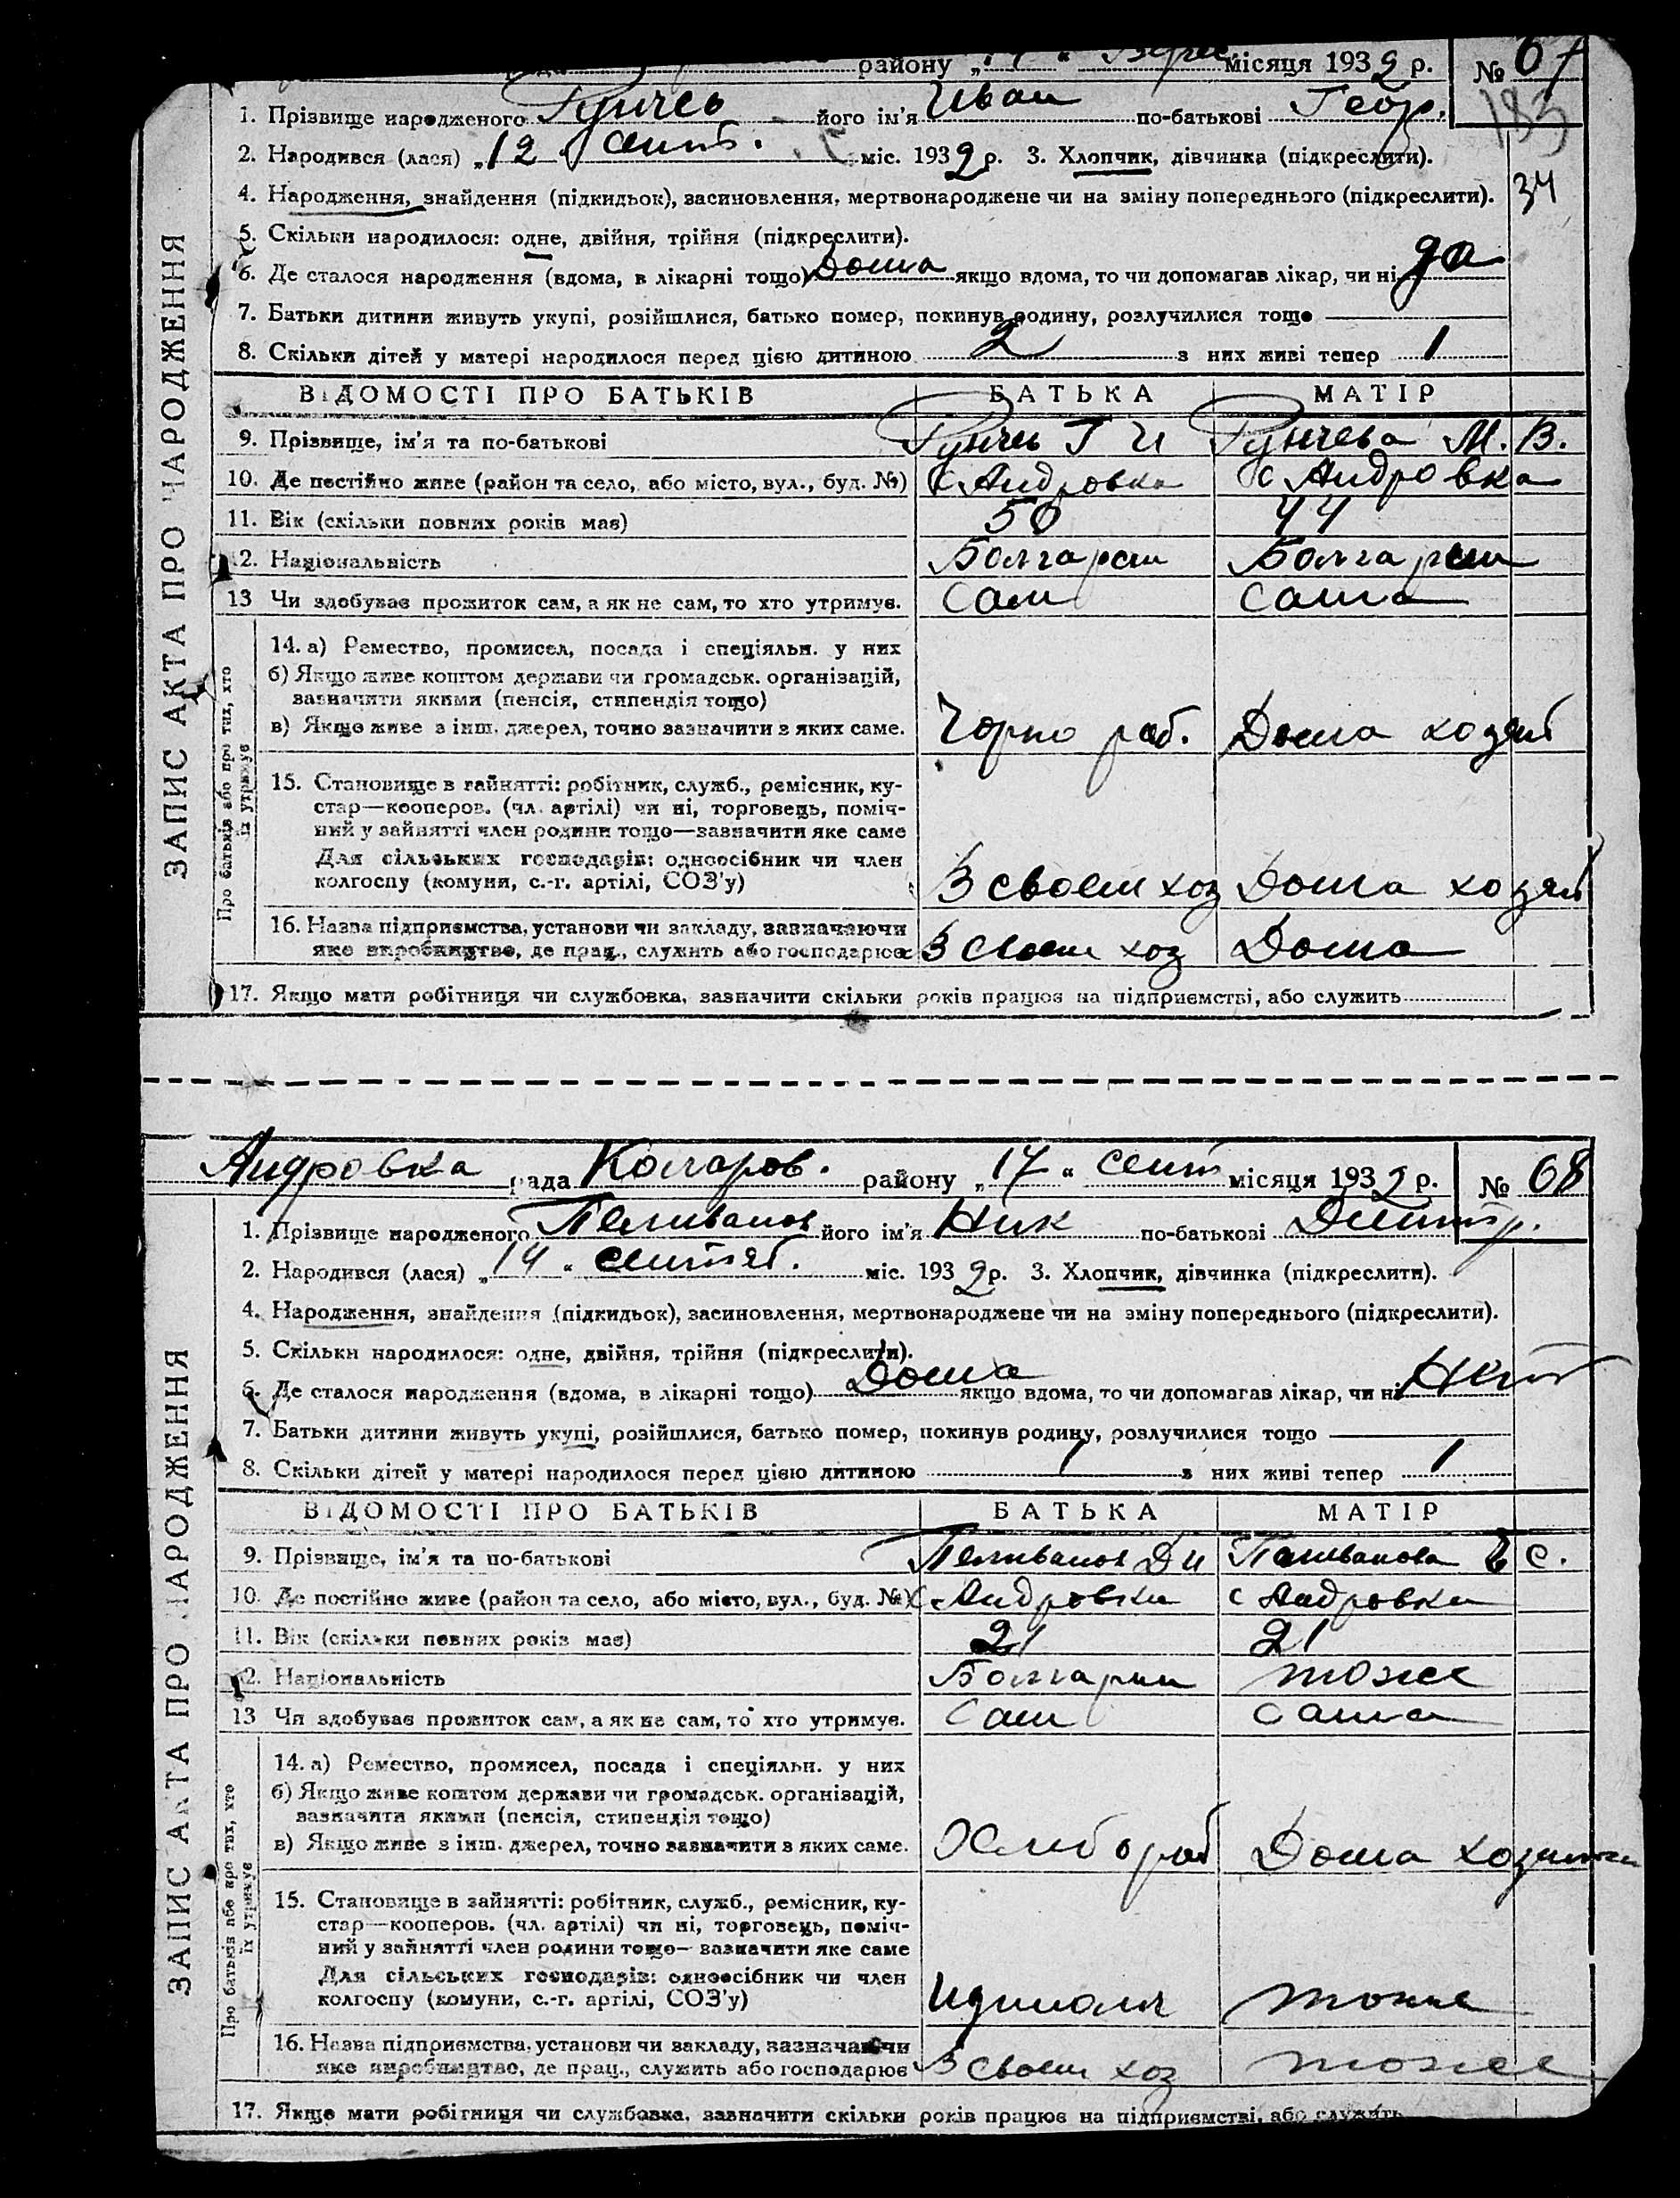 району „ “ місяця 1932 р. № 67
183
1. Прізвище народженого Рунчев його ім'я Иван по-батькові Геор.
2. Народився (лася) „12 “ сент. міс. 1932 р. 3. Хлопчик, дівчинка (підкреслити).
34
4. Народження, знайдення (підкидьок), засиновлення, мертвонароджене чи на зміну попереднього (підкреслити).
5. Скільки народилося: одне, двійня, трійня (підкреслити).
6. Де сталося народження (вдома, в лікарні тощо) Дома якщо вдома, то чи допомагав лікар, чи ні да
7. Батьки дитини живуть укупі, розійшлися, батько помер, покинув родину, розлучилися тоще
8. Скільки дітей у матері народилося перед цією дитиною 2 з них живі тепер 1
ЗАПИС АКТА ПРО НАРОДЖЕННЯ
ВІДОМОСТІ ПРО БАТЬКІВ БАТЬКА МАТІР
9. Прізвище, ім'я та по-батькові Рунчев Г И Рунчева М. В.
10. Де постійно живе (район та село, або місто, вул., буд. №) с Андровка с Андровка
11. Вік (скільки повних років має) 50 44
12. Національність Болгарси Болгарси
13 Чи здобуває прожиток сам, а як не сам, то хто утримує. Сам Сама
Про батьків або про тих, хто їх утримує
14. а) Ремество, промисел, посада і спеціяльн. у них
б) Якщо живе коштом держави чи громадськ. організацій,
зазначити якими (пенсія, стипендія тощо)
в) Якщо живе з інш. джерел, точно зазначити з яких саме. Чорно раб. Дома хозяй
15. Становище в зайнятті: робітник, служб., ремісник, ку-
стар—кооперов. (чл. артілі) чи ні, торговець, поміч-
ний у зайнятті член родини тощо—зазначити яке саме
Для сільських господарів: одноосібник чи член
колгоспу (комуни, с.-г. артілі, СОЗ'у) В своем хоз Дома хозяй
16. Назва підприємства, установи чи закладу, зазначаючи
яке виробництво, де прац., служить або господарює В своем хоз Дома
17. Якщо мати робітниця чи службовка, зазначити скільки років працює на підприємстві, або служить
Андровка рада Коларов. району „17 “ сент місяця 1932 р. № 68
1. Прізвище народженого Пеливанов його ім'я Ник по-батькові Дмитр.
2. Народився (лася) „14 “ сентяб. міс. 1932 р. 3. Хлопчик, дівчинка (підкреслити).
4. Народження, знайдення (підкидьок), засиновлення, мертвонароджене чи на зміну попереднього (підкреслити).
5. Скільки народилося: одне, двійня, трійня (підкреслити).
6. Де сталося народження (вдома, в лікарні тощо) Дома якщо вдома, то чи допомагав лікар, чи ні Нет
7. Батьки дитини живуть укупі, розійшлися, батько помер, покинув родину, розлучилися тощо
8. Скільки дітей у матері народилося перед цією дитиною 1 з них живі тепер 1
ЗАПИС АКТА ПРО НАРОДЖЕННЯ
ВІДОМОСТІ ПРО БАТЬКІВ БАТЬКА МАТІР
9. Прізвище, ім'я та по-батькові Пеливанов Д И Пеливанова Е С.
10. Де постійно живе (район та село, або місто, вул., буд. №) с Андровки с Андровки
11. Вік (скільки повних років має) 21 21
12. Національність Болгарин тоже
13 Чи здобуває прожиток сам, а як не сам, то хто утримує. Сам Сама
Про батьків або про тих, хто їх утримує
14. а) Ремество, промисел, посада і спеціяльн. у них
б) Якщо живе коштом держави чи громадськ. організацій,
зазначити якими (пенсія, стипендія тощо)
в) Якщо живе з інш. джерел, точно зазначити з яких саме. Хлибороб Дома
15. Становище в зайнятті: робітник, служб., ремісник, ку-
стар—кооперов. (чл. артілі) чи ні, торговець, поміч-
ний у зайнятті член родини тощо—зазначити яке саме
Для сільських господарів: одноосібник чи член
колгоспу (комуни, с.-г. артілі, СОЗ'у) тоже
16. Назва підприємства, установи чи закладу, зазначаючи
яке виробництво, де прац., служить або господарює В своем хоз тоже
17. Якщо мати робітниця чи службовка, зазначити скільки років працює на підприємстві, або служить